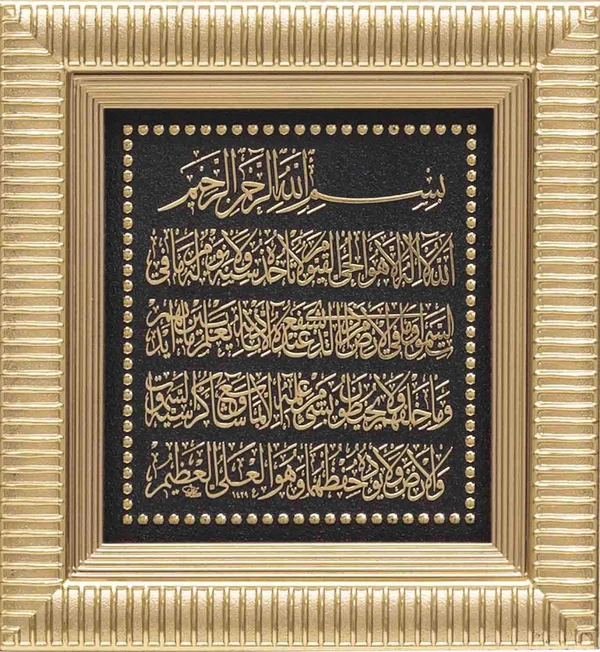 بِسْمِ اللَّهِ الرَّحْمَٰنِ الرَّحِيمِ
اللَّهُ لَا إِلَٰهَ إِلَّا هُوَ الْحَيُّ الْقَيُّومُ لَا تَأْخُذُهُ سِنَةٌ وَلَا نَوْمٌ لَهُ مَا فِي
السَّمَاوَاتِ وَمَا فِي الْأَرْضِ مَنْ ذَا الَّذِي يَشْفَعُ عِنْدَهُ إِلَّا بِإِذْنِهِ يَعْلَمُ مَا بَيْنَ أَيْدِيهِمْ
وَمَا خَلْفَهُمْ وَلَا يُحِيطُونَ بِشَيْءٍ مِنْ عِلْمِهِ إِلَّا بِمَا شَاءَ وَسِعَ كُرْسِيُّهُ السَّمَاوَاتِ
وَالْأَرْضَ وَلَا يَئُودُهُ حِفْظُهُمَا وَهُوَ الْعَلِيُّ الْعَظِيمُ
١٤٢٩